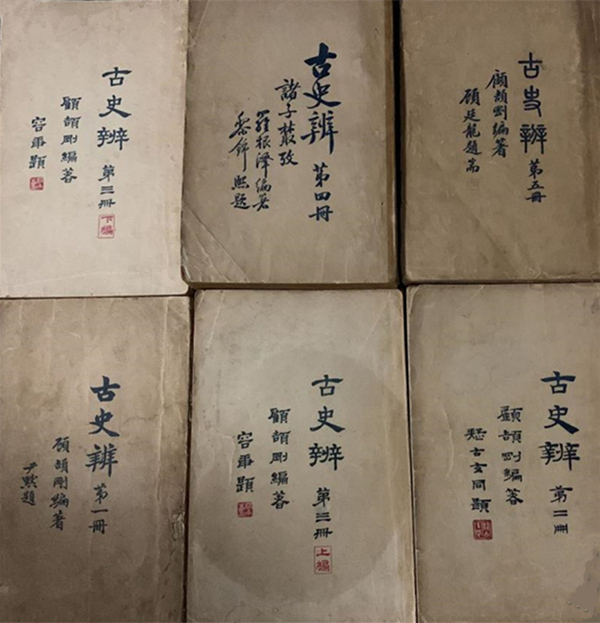 古史辨 第三冊
下編
顧頡剛編著
容庚題
古史辨 第四冊
諸子叢攷
羅根澤編著
黎錦熙題
古史辨 第五冊
顧頡剛編著
顧廷龍題耑
古史辨 第一冊
顧頡剛編著
尹默題
古史辨 第三冊
上編
顧頡剛編著
容庚題
古史辨 第二冊
顧頡剛編著
疑古玄同題